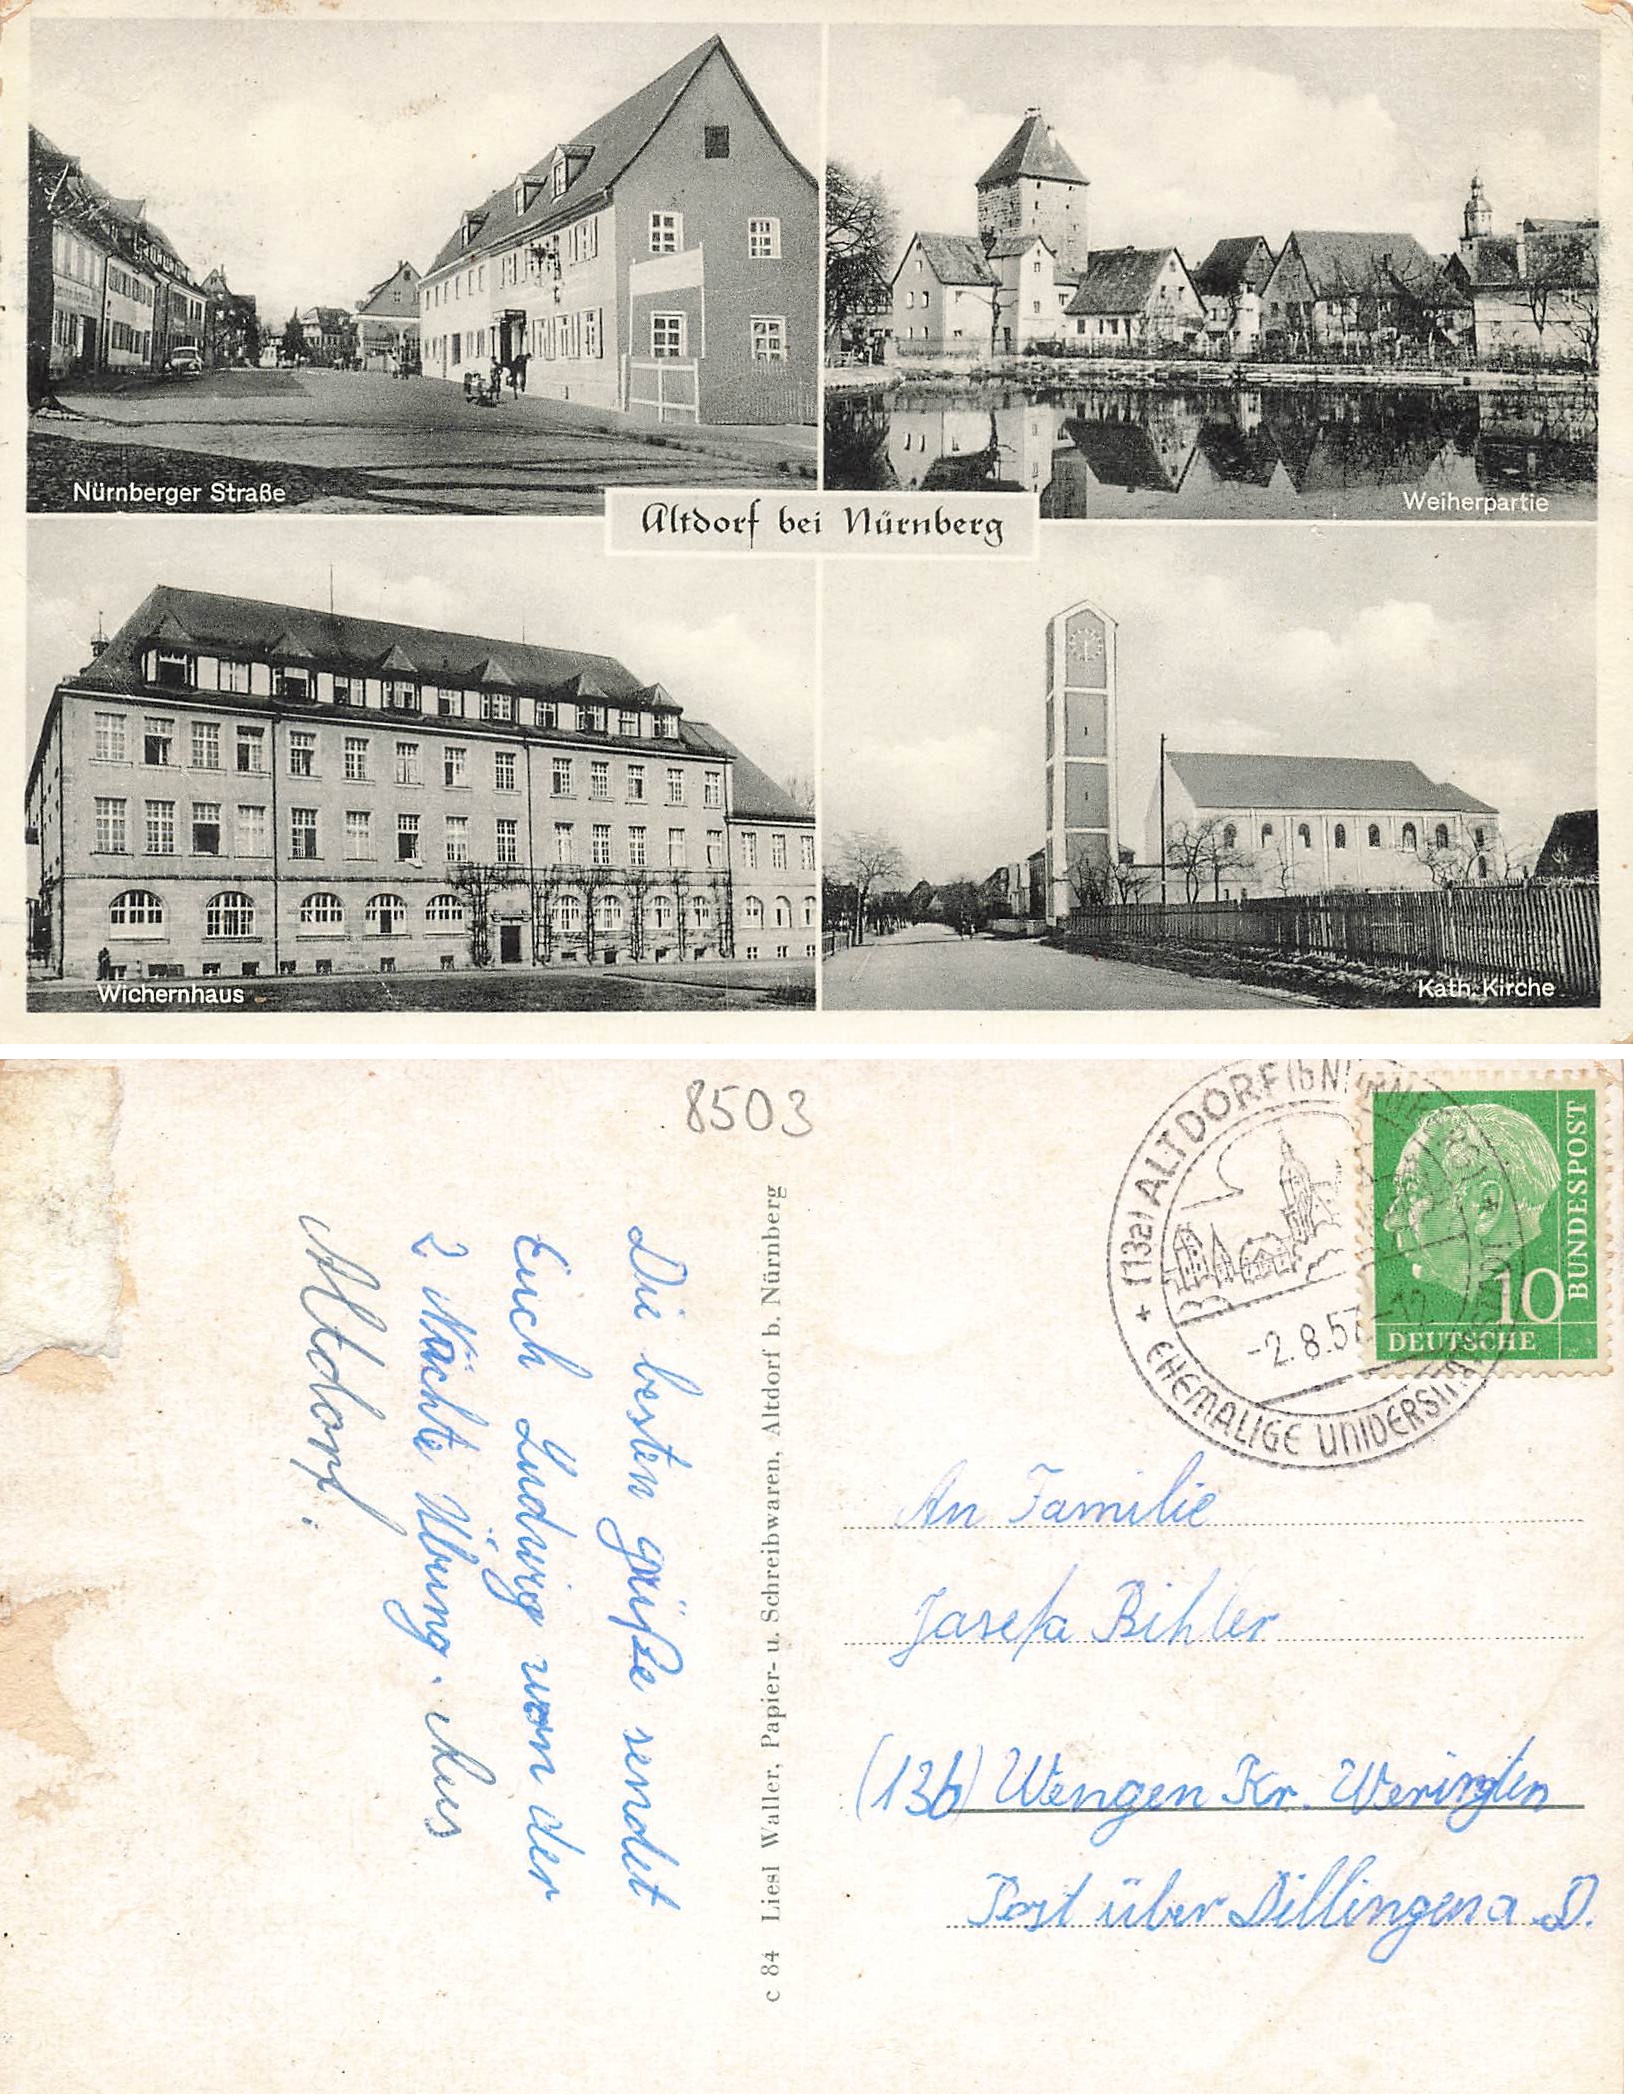 Nürnberger Straße
Weiherpartie
Altdorf bei Nürnberg
Wichernhaus
Kath. Kirche
8503
(13a) ALTDORF (b NÜRNBG)
EHEMALIGE UNIVERSITÄTSSTADT
-2.8.57-12
10
DEUTSCHE
BUNDESPOST
Die besten Grüße sendet
Euch Ludwig von der
2 Nächte Übung. Aus
Altdorf.
c 84 Liesl Waller, Papier- u. Schreibwaren, Altdorf b. Nürnberg
An Familie
Josefa Bihler
(13b) Wengen Kr. Wertingen
Post über Dillingen a. D.